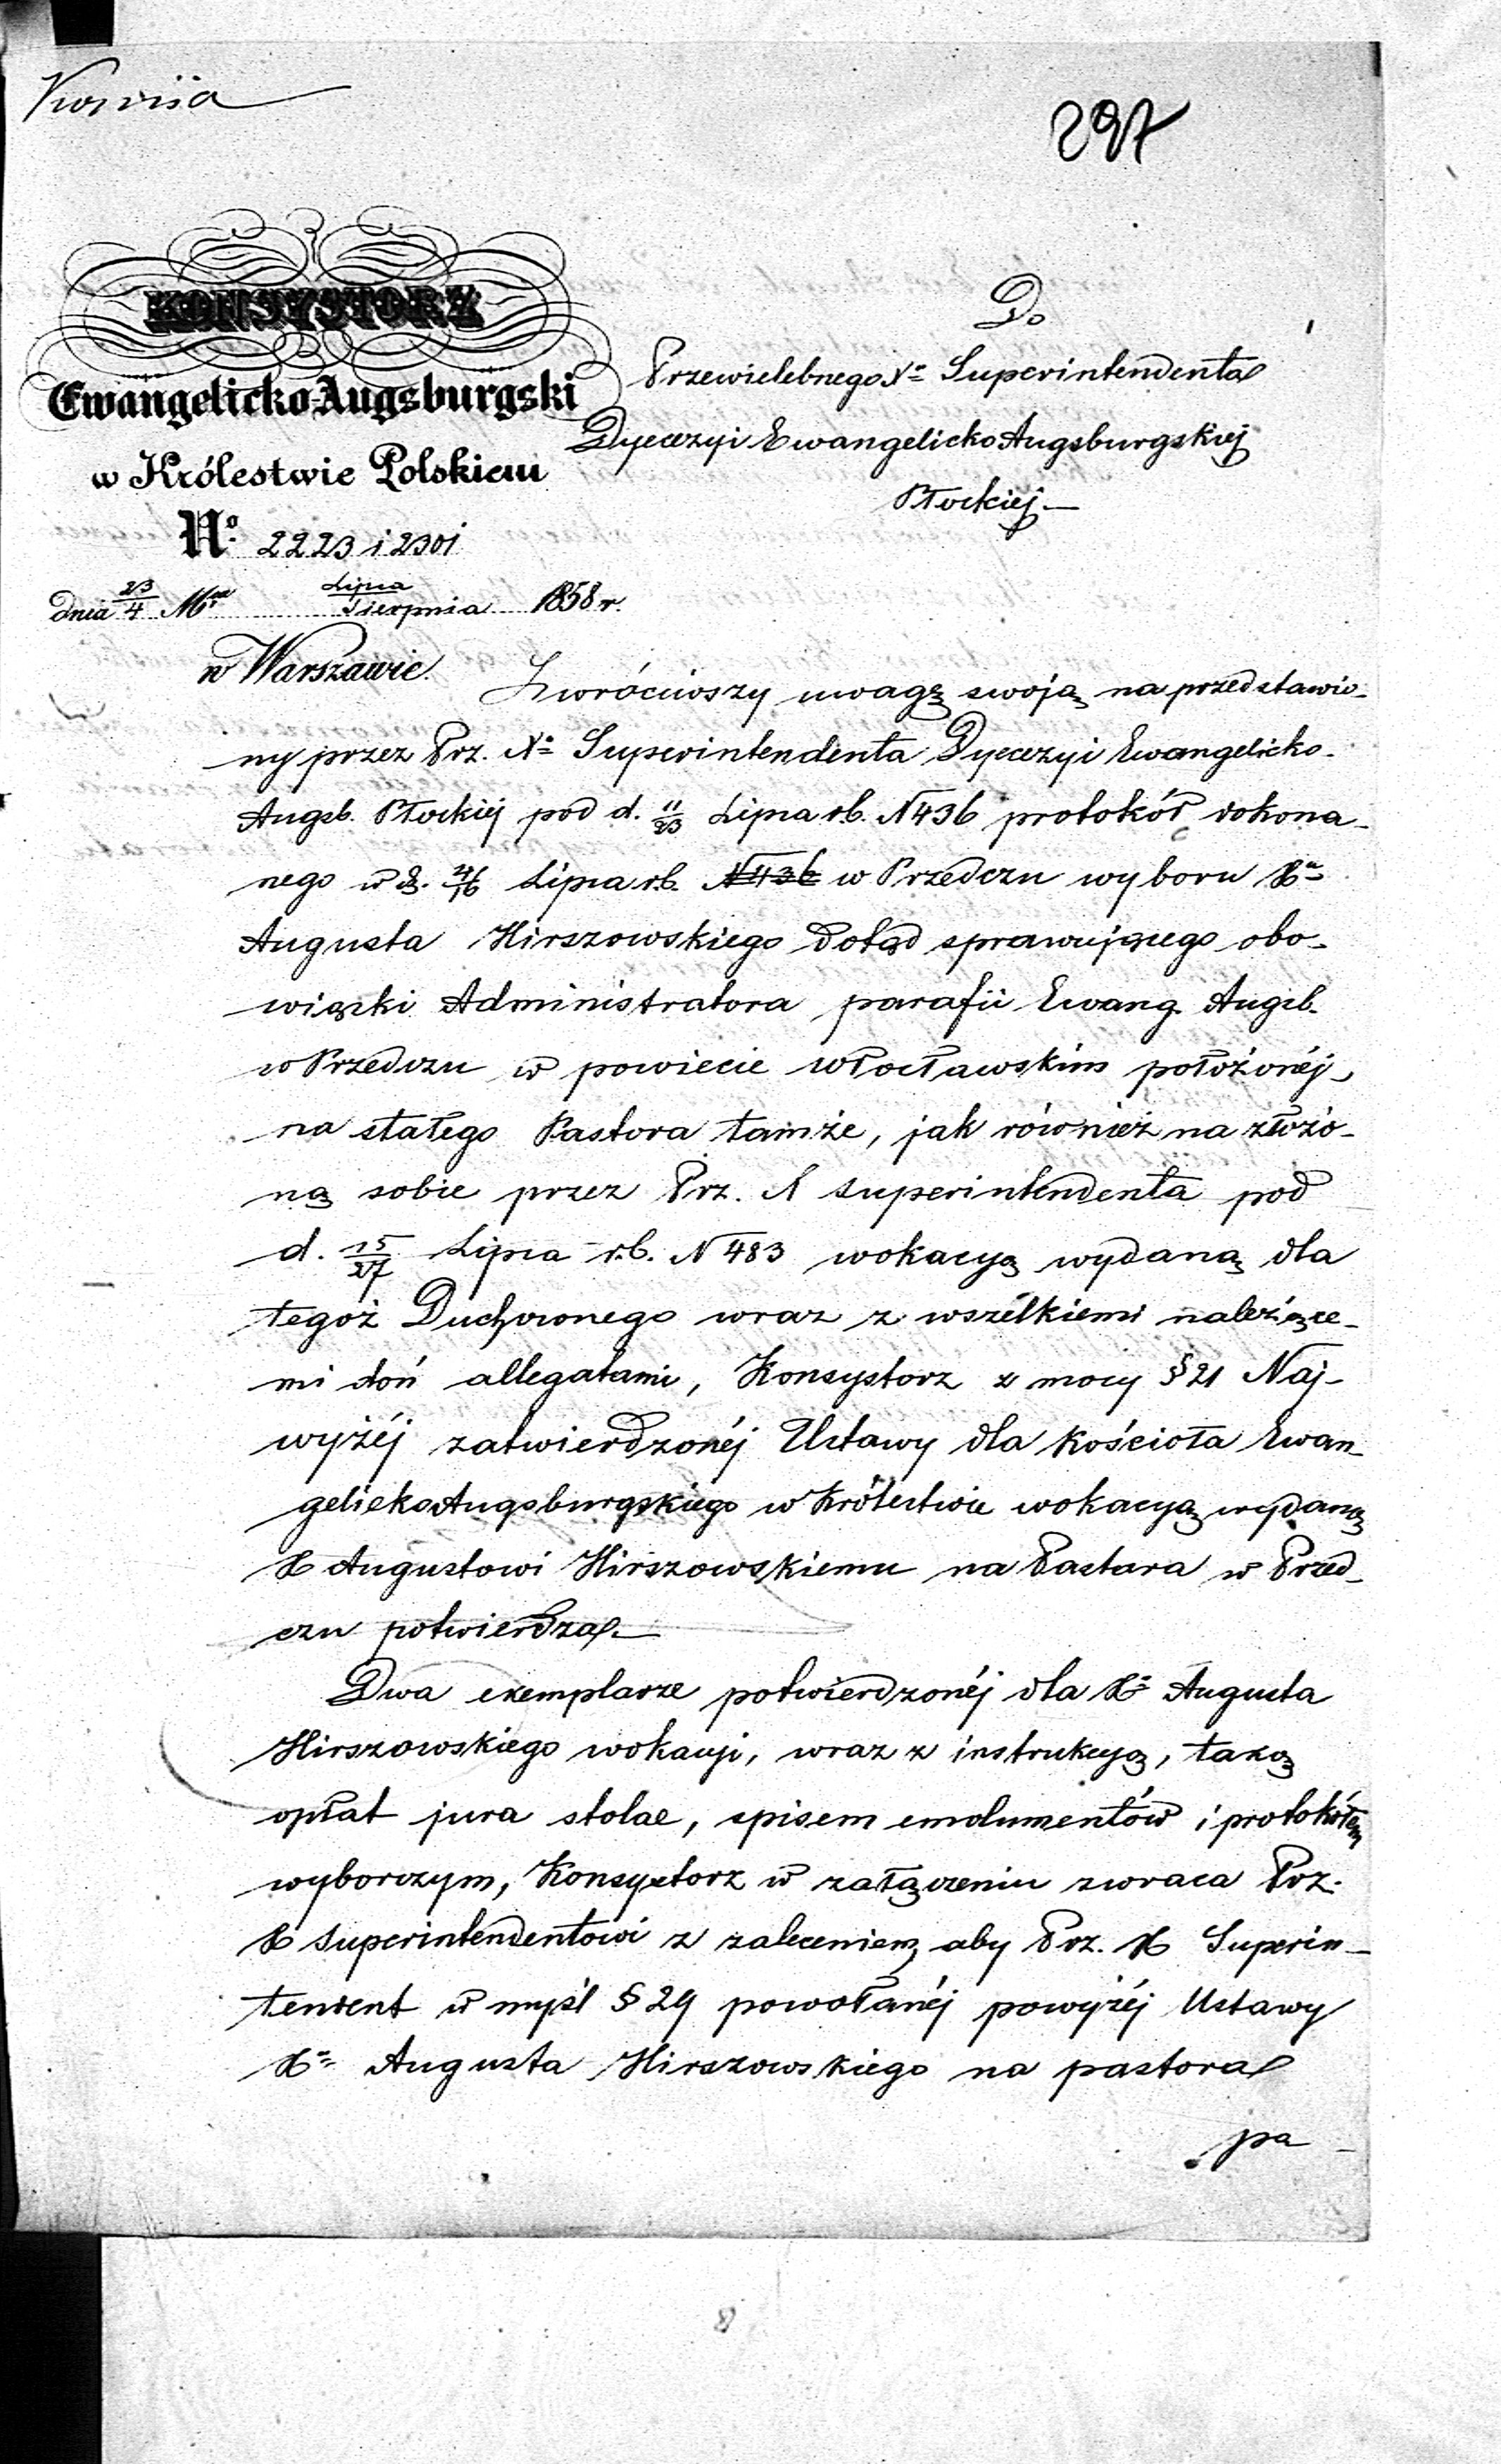 297
KONSYSTORZ
Ewangelicko-Augsburgski
w Królestwie Polskiem
No. 2223 i 2301
dnia 23/4 Mca Lipca/Sierpnia 1858 r.
w Warszawie.
Do
Przewielebnego Xa Superintendenta
Dyecezyi Ewangelicko Augsburgskiej
Płockiej.—
Zwróciwszy uwagę swoją na przedstawio-
ny przez Prz. Xa Superintendenta Dyecezyi Ewangelicko-
Augsb. Płockiej pod d. 11/23 Lipca r.b. N 436 protokół dokona-
nego w d. 4/16 Lipca r.b. N 436 w Przedczu wyboru Xa
Augusta Hirszowskiego dotąd sprawującego obo-
wiązki Administratora parafii Ewang. Augsb.
w Przedczu w powiecie włocławskim położonéj,
na stałego Pastora tamże, jak również na złożo-
ną sobie przez Prz. X Superintendenta pod
d. 15/27 Lipca r.b. N 483 wokacyą wydaną dla
tegoż Duchownego wraz z wszelkiemi należące-
mi doń allegatami, Konsystorz z mocy § 21 Naj-
wyżéj zatwierdzonéj Ustawy dla Kościoła Ewan-
gelicko Augsburgskiego w Królestwie wokacyą wydaną
X Augustowi Hirszowskiemu na Pastora w Przed-
czu potwierdza.—
Dwa exemplarze potwierdzonéj dla Xa Augusta
Hirszowskiego wokacyi, wraz z instrukcyą, taxą
opłat jura stolae, spisem emolumentów i protokółem
wyborczym, Konsystorz w załączeniu zwraca Prz.
X Superintendentowi z zaleceniem, aby Prz. X Superin-
tendent w myśl § 29 powołanéj powyżéj Ustawy
Xa Augusta Hirszowskiego na pastora
pa